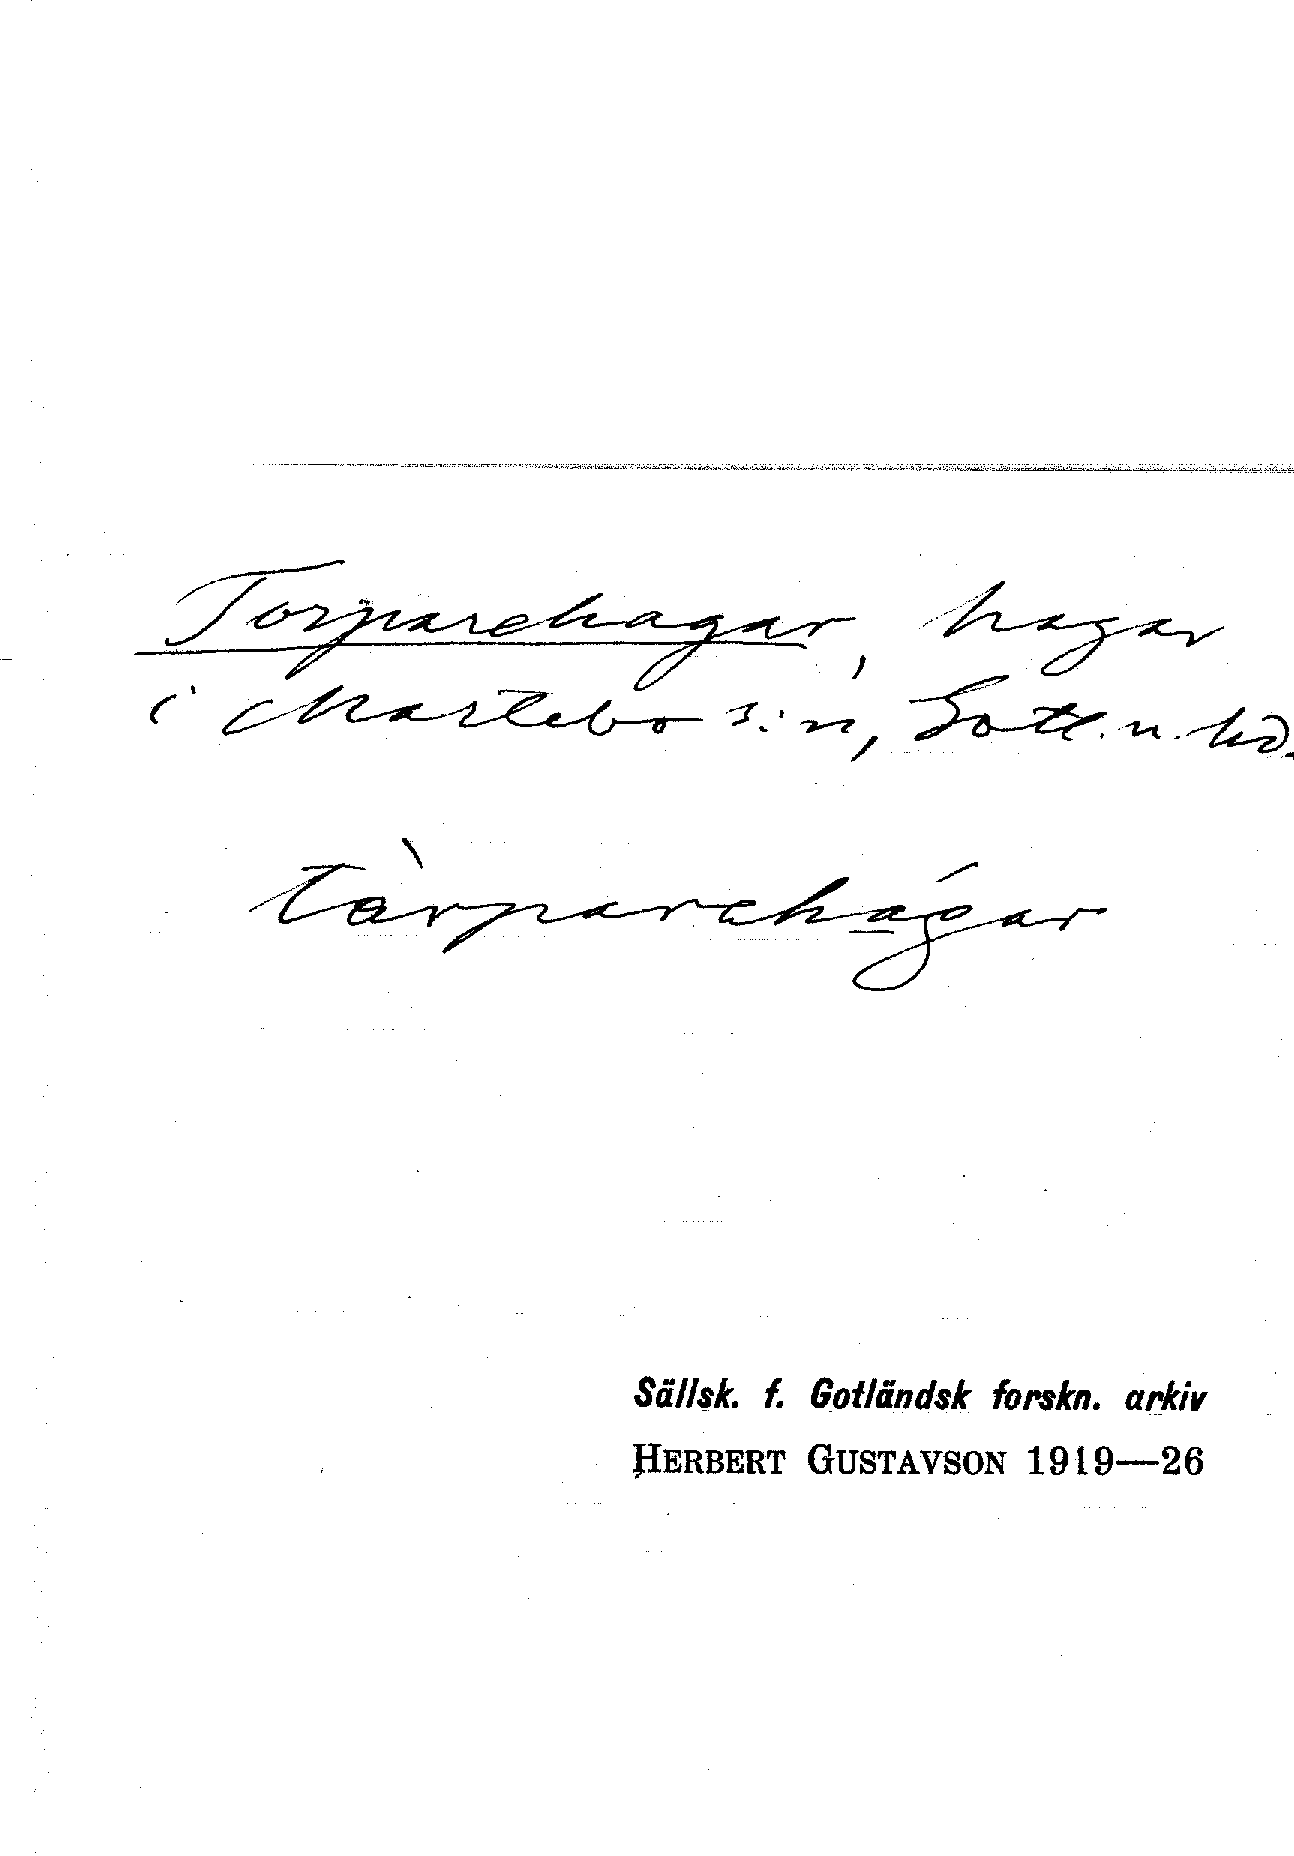 Torparehagar, hagar
i Martebo s:n, Gotl. n. hd.
tàrparehágar
Sällsk. f. Gotländsk forskn. arkiv
HERBERT GUSTAVSON 1919—26